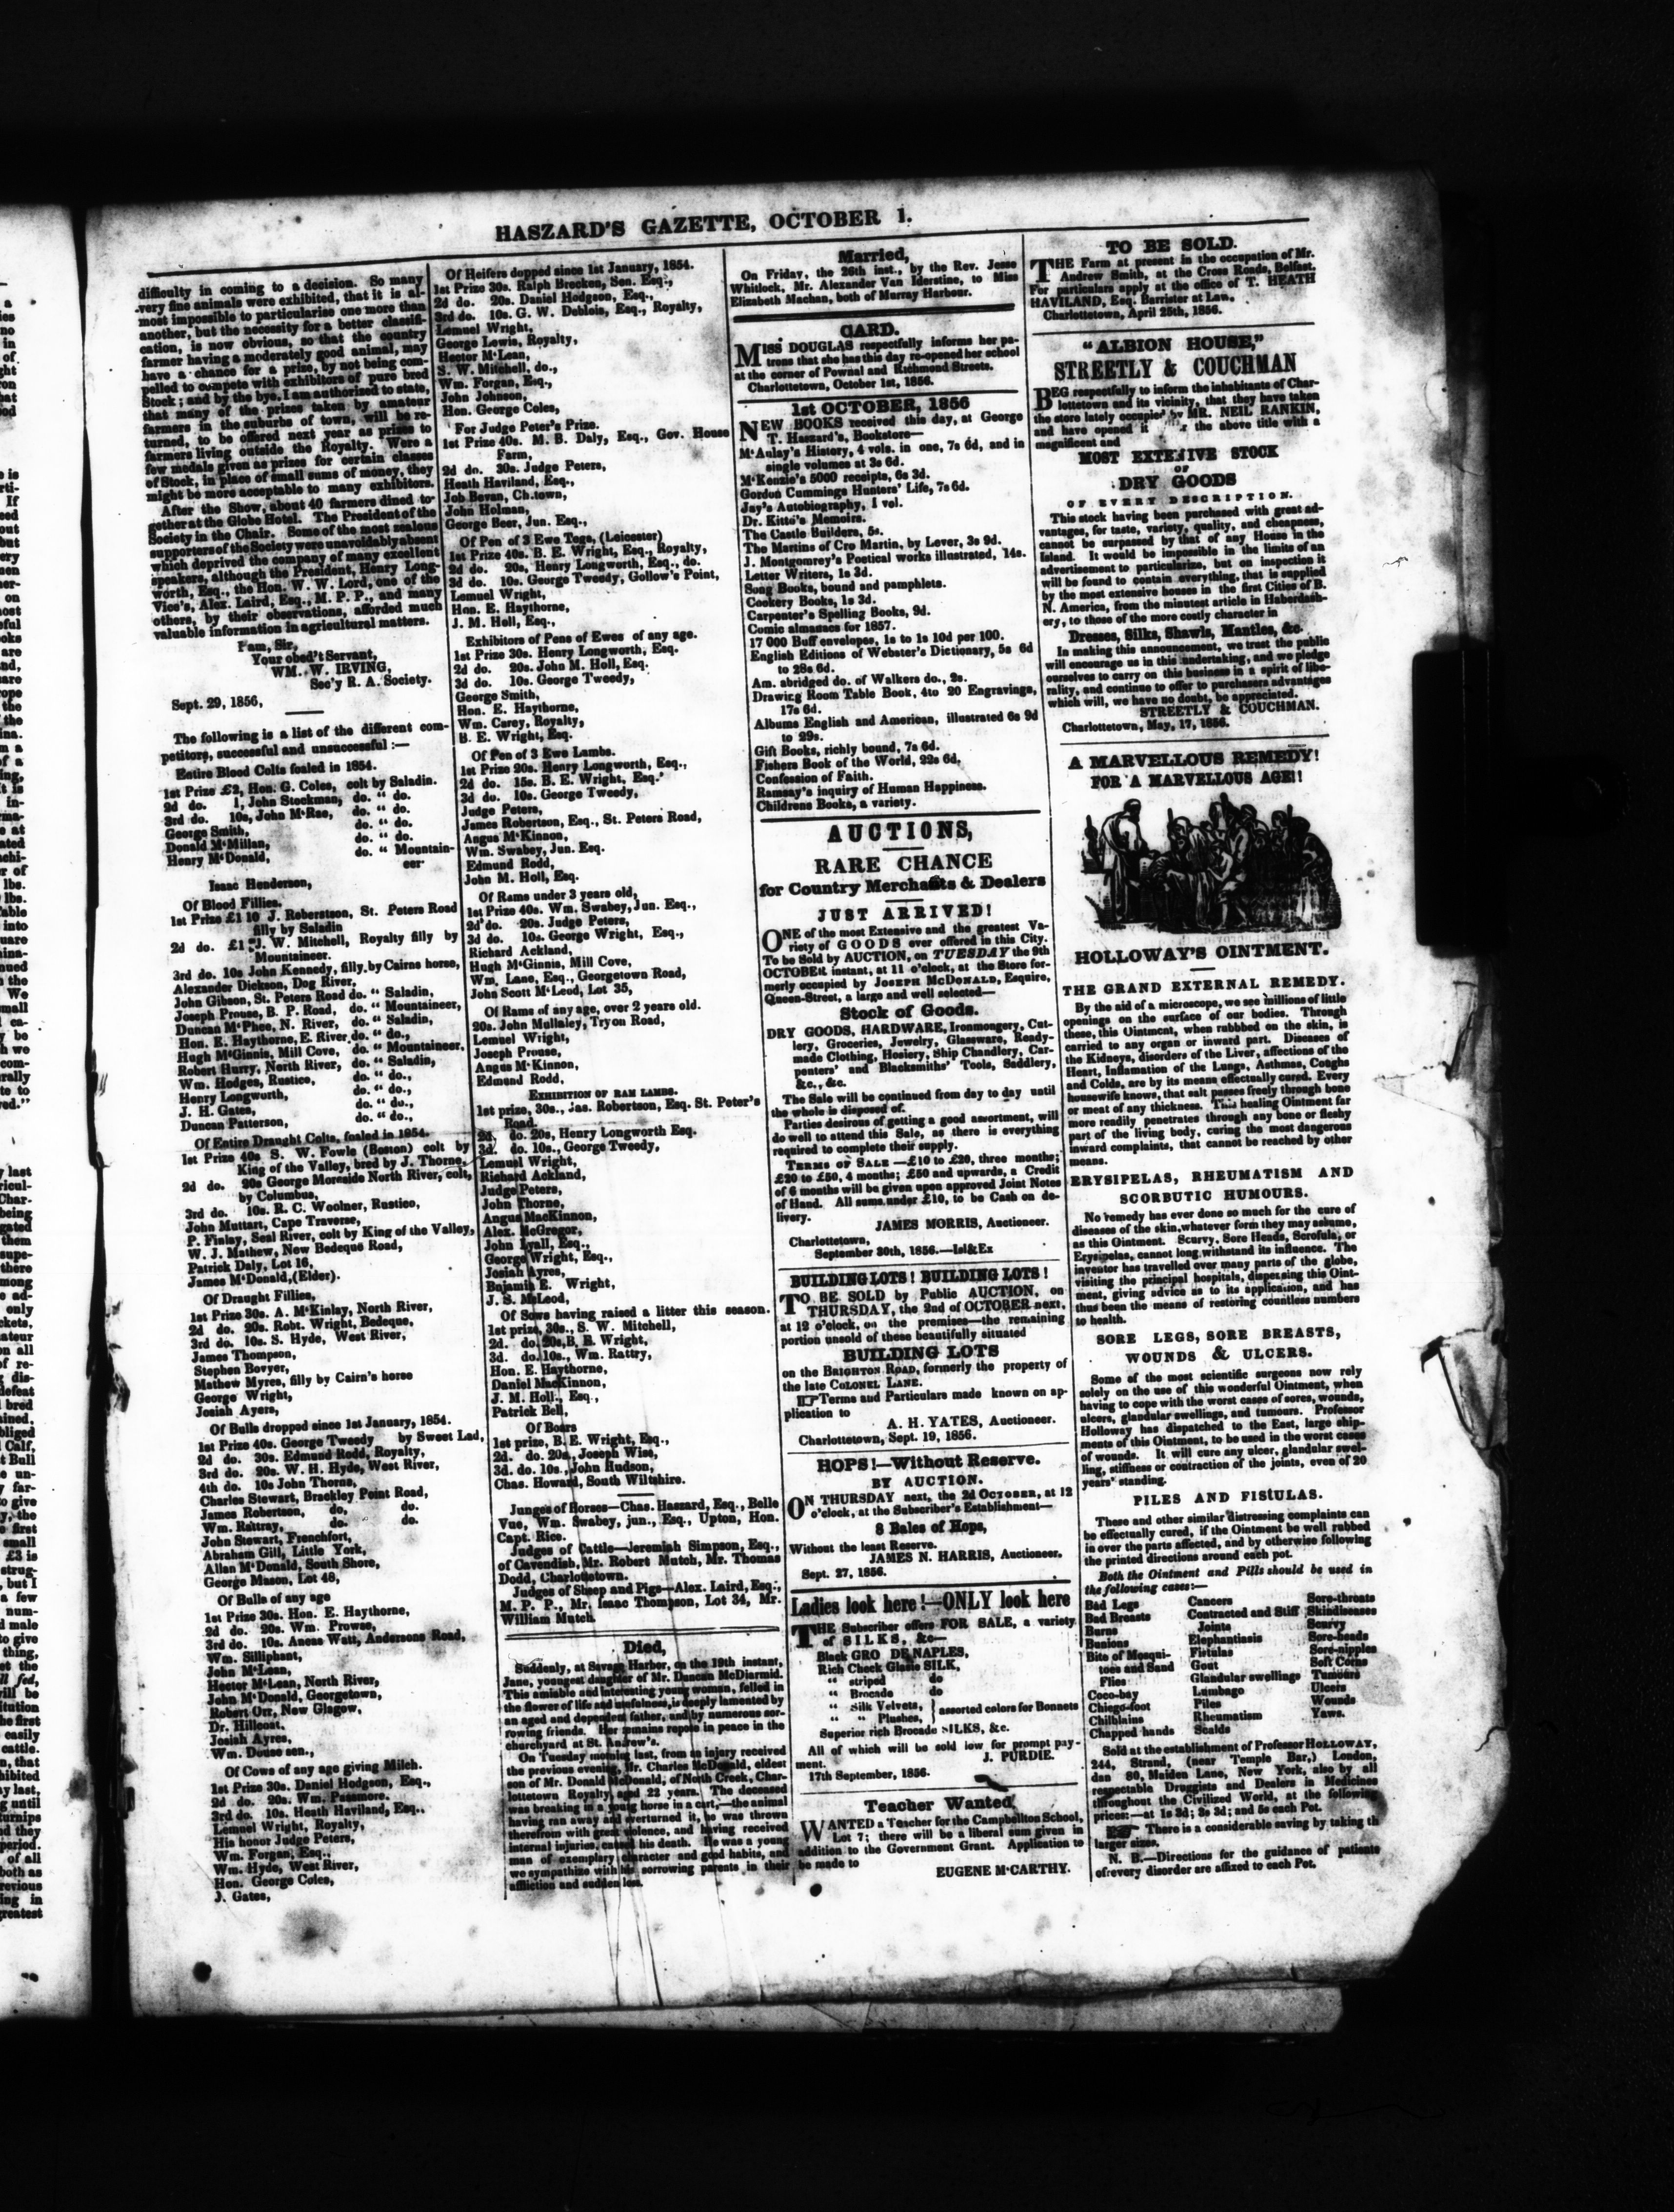 HASZARD'S GAZETTE, OCTOBER 1.
difficulty in coming to a decision. So many
very fine animals were exhibited, that it is al-
most impossible to particularise one more than
another, but the necessity for a better classifi-
cation, is now obvious, so that the country
farmer having a moderately good animal, may
have a chance for a prize, by not being com-
pelled to compete with exhibitors of pure bred
Stock; and by the bye, I am authorized to state,
that many of the prizes taken by amateur
farmers in the suburbs of town, will be re-
turned, to be offered next year as prizes to
farmers living outside the Royalty. Were a
few medals given as prizes for certain classes
of Stock, in place of small sums of money, they
might be more acceptable to many exhibitors.
After the Show, about 40 farmers dined to-
gether at the Globe Hotel. The President of the
Society in the Chair. Some of the most zealous
supporters of the Society were unavoidably absent
which deprived the company of many excellent
speakers, although the President, Henry Long-
worth, Esq., the Hon. W. W. Lord, one of the
Vice's, Alex. Laird, Esq., M. P. P., and many
others, by their observations, afforded much
valuable information in agricultural matters.
I'am, Sir,
Your obed't Servant,
WM. W. IRVING,
Sec'y R. A. Society.
Sept. 29, 1856,
The following is a list of the different com-
petitors, successful and unsuccessful :—
Entire Blood Colts foaled in 1854.
1st Prize £2, Hon. G. Coles, colt by Saladin.
2d do. 1, John Stockman, do. " do.
3rd do. 10s, John M'Rae, do. " do.
George Smith, do. " do.
Donald M'Millan, do. " do.
Henry M'Donald, do. " Mountain-
eer
Isaac Henderson,
Of Blood Fillies.
1st Prize £1 10 J. Roberstson, St. Peters Road
filly by Saladin
2d do. £1 J. W. Mitchell, Royalty filly by
Mountaineer.
3rd do. 10s John Kennedy, filly by Cairns horse,
Alexander Dickson, Dog River,
John Gibson, St. Peters Road do. " Saladin,
Joseph Prouse, B. P. Road, do. " Mountaineer,
Duncan M'Phee, N. River, do. " Saladin,
Hon. E. Haythorne, E. River do. " do.,
Hugh M'Ginnis, Mill Cove, do. " Mountaineer,
Robert Hurry, North River, do. " Saladin,
Wm. Hodges, Rustico, do. " do.,
Henry Longworth, do. " do.,
J. H. Gates, do. " do.,
Duncan Patterson, do. " do.,
Of Entire Draught Colts, foaled in 1854.
1st Prize 40s S. W. Fowle (Boston) colt by
King of the Valley, bred by J. Thorne,
2d do. 20s George Moreside North River, colt,
by Columbus,
3rd do. 10s. R. C. Woolner, Rustico,
John Muttart, Cape Traverse,
P. Finlay, Seal River, colt by King of the Valley,
W. J. Mathew, New Bedeque Road,
Patrick Daly, Lot 16,
James M'Donald, (Elder).
Of Draught Fillies,
1st Prize 30s. A. M'Kinlay, North River,
2d do. 20s. Robt. Wright, Bedeque,
3rd do. 10s. S. Hyde, West River,
James Thompson,
Stephen Bovyer,
Mathew Myres, filly by Cairn's horse
George Wright,
Josiah Ayers,
Of Bulls dropped since 1st January, 1854.
1st Prize 40s. George Tweedy by Sweet Lad,
2d do. 30s. Edmund Rodd, Royalty,
3rd do. 20s. W. H. Hyde, West River,
4th do. 10s John Thorne,
Charles Stewart, Brackley Point Road,
James Robertson, do. do.
Wm. Rattray, do. do.
John Stewart, Frenchfort,
Abraham Gill, Little York,
Allan M'Donald, South Shore,
George Mason, Lot 48,
Of Bulls of any age
1st Prize 30s. Hon. E. Haythorne,
2d do. 20s. Wm. Prowse,
3rd do. 10s. Aneas Watt, Andersons Road,
Wm. Silliphant,
John M'Lean,
Hector M'Lean, North River,
John M'Donald, Georgetown,
Robert Orr, New Glasgow,
Dr. Hillcoat,
Josiah Ayres,
Wm. Douse sen.,
Of Cows of any age giving Milch.
1st Prize 30s. Daniel Hodgson, Esq.,
2d do. 20s. Wm. Passmore.
3rd do. 10s. Heath Haviland, Esq.,
Lemuel Wright, Royalty,
His honor Judge Peters,
Wm. Forgan, Esq.,
Wm. Hyde, West River,
Hon. George Coles,
J. Gates,
Of Heifers dopped since 1st January, 1854.
1st Prize 30s. Ralph Brecken, Sen. Esq.,
2d do. 20s. Daniel Hodgson, Esq.,
3rd do. 10s. G. W. Deblois, Esq., Royalty,
Lemuel Wright,
George Lewis, Royalty,
Hector M'Lean,
S. W. Mitchell, do.,
Wm. Forgan, Esq.,
John Johnson,
Hon. George Coles,
For Judge Peter's Prize.
1st Prize 40s. M. B. Daly, Esq., Gov. House
Farm,
2d do. 30s. Judge Peters,
Heath Haviland, Esq.,
Job Bevan, Ch.town,
John Holman,
George Beer, Jun. Esq.,
Of Pen of 3 Ewe Tegs, (Leicester)
1st Prize 40s. B. E. Wright, Esq., Royalty,
2d do. 20s, Henry Longworth, Esq., do.
3d do. 10s. George Tweedy, Gollow's Point,
Lemuel Wright,
Hon. E. Haythorne,
J. M. Holl, Esq.,
Exhibitors of Pens of Ewes of any age.
1st Prize 30s. Henry Longworth, Esq.
2d do. 20s. John M. Holl, Esq.
3d do. 10s. George Tweedy,
George Smith,
Hon. E. Haythorne,
Wm. Carey, Royalty,
B. E. Wright, Esq.
Of Pen of 3 Ewe Lambs.
1st Prize 20s. Henry Longworth, Esq.,
2d do. 15s. B. E. Wright, Esq.
3d do. 10s. George Tweedy,
Judge Peters,
James Robertson, Esq., St. Peters Road,
Angus M'Kinnon,
Wm. Swabey, Jun. Esq.
Edmund Rodd,
John M. Holl, Esq.
Of Rams under 3 years old,
1st Prize 40s. Wm. Swabey, Jun. Esq.,
2d do. 20s. Judge Peters,
3d do. 10s. George Wright, Esq.,
Richard Ackland,
Hugh M'Ginnis, Mill Cove,
Wm. Lane, Esq., Georgetown Road,
John Scott M'Leod, Lot 35,
Of Rams of any age, over 2 years old.
20s. John Mullaley, Tryon Road,
Lemuel Wright,
Joseph Prouse,
Angus M'Kinnon,
Edmund Rodd,
EXHIBITION OF RAM LAMBS.
1st prize, 30s., Jas. Robertson, Esq. St. Peter's
Road.
2d. do. 20s, Henry Longworth Esq.
3d. do. 10s., George Tweedy,
Lemuel Wright,
Richard Ackland,
Judge Peters,
John Thorne,
Angus MacKinnon,
Alex. McGregor,
John Lyall, Esq.,
George Wright, Esq.,
Josiah Ayres,
Bejamin E. Wright,
J. S. McLeod,
Of Sows having raised a litter this season.
1st prize, 30s., S. W. Mitchell,
2d. do. 20s, B. E. Wright,
3d. do. 10s., Wm. Rattry,
Hon. E. Haythorne,
Daniel MacKinnon,
J. M. Holl., Esq.,
Patrick Bell,
Of Boars
1st prize, B. E. Wright, Esq.,
2d. do. 20s., Joseph Wise,
3d. do. 10s., John Hudson,
Chas. Howard, South Wiltshire.
Junges of Horses—Chas. Haszard, Esq., Belle
Vue, Wm. Swabey, jun., Esq., Upton, Hon.
Capt. Rice.
Judges of Cattle—Jeremiah Simpson, Esq.,
of Cavendish, Mr. Robert Mutch, Mr. Thomas
Dodd, Charlottetown.
Judges of Sheep and Pigs—Alex. Laird, Esq.,
M. P. P., Mr. Isaac Thompson, Lot 34, Mr.
William Mutch.
Died,
Suddenly, at Savage Harbor, on the 19th instant,
Jane, youngest daughter of Mr. Duncan McDiarmid.
This amiable and interesting young woman, felled in
the flower of life and usefulness, is deeply lamented by
an aged and dependent father, and by numerous sor-
rowing friends. Her remains repose in peace in the
churchyard at St. Andrew's.
On Tuesday morning last, from an injury received
the previous evening, Mr. Charles McDonald, eldest
son of Mr. Donald McDonald, of North Creek, Char-
lottetown Royalty, aged 22 years. The deceased
was breaking in a young horse in a cart,—the animal
having ran away and overturned it, he was thrown
therefrom with great violence, and having received
internal injuries, caused his death. He was a young
man of exemplary character and good habits, and
we sympathize with his sorrowing parents in their
affliction and sudden loss.
Married,
On Friday, the 26th inst., by the Rev. Jesse
Whitlock, Mr. Alexander Van Iderstine, to Miss
Elizabeth Machan, both of Murray Harbour.
CARD.
MISS DOUGLAS respectfully informs her pa-
trons that she has this day re-opened her school
at the corner of Pownal and Richmond Streets.
Charlottetown, October 1st, 1856.
1st OCTOBER, 1856
NEW BOOKS received this day, at George
T. Haszard's, Bookstore—
M'Aulay's History, 4 vols. in one, 7s 6d, and in
single volumes at 3s 6d.
M'Kenzie's 5000 receipts, 6s 3d.
Gordon Cummings Hunters' Life, 7s 6d.
Jay's Autobiography, 1 vol.
Dr. Kitto's Memoirs.
The Castle Builders, 5s.
The Martins of Cro Martin, by Lever, 3s 9d.
J. Montgomrey's Poetical works illustrated, 14s.
Letter Writers, 1s 3d.
Song Books, bound and pamphlets.
Cookery Books, 1s 3d.
Carpenter's Spelling Books, 9d.
Comic almanacs for 1857.
17 000 Buff envelopes, 1s to 1s 10d per 100.
English Editions of Webster's Dictionary, 5s 6d
to 28s 6d.
Am. abridged do. of Walkers do., 2s.
Drawing Room Table Book, 4to 20 Engravings,
17s 6d.
Albums English and American, illustrated 6s 9d
to 29s.
Gift Books, richly bound, 7s 6d.
Fishers Book of the World, 22s 6d,
Confession of Faith.
Ramsay's inquiry of Human Happiness.
Childrens Books, a variety.
AUCTIONS,
RARE CHANCE
for Country Merchants & Dealers
JUST ARRIVED!
ONE of the most Extensive and the greatest Va-
riety of GOODS ever offered in this City.
To be Sold by AUCTION, on TUESDAY the 9th
OCTOBER instant, at 11 o'clock, at the Store for-
merly occupied by JOSEPH McDONALD, Esquire,
Queen-Street, a large and well selected—
Stock of Goods.
DRY GOODS, HARDWARE, Ironmongery, Cut-
lery, Groceries, Jewelry, Glassware, Ready-
made Clothing, Hosiery, Ship Chandlery, Car-
penters' and Blacksmiths' Tools, Saddlery,
&c., &c.
The Sale will be continued from day to day until
the whole is disposed of.
Parties desirous of getting a good assortment, will
do well to attend this Sale, as there is everything
required to complete their supply.
TERMS OF SALE —£10 to £20, three months;
£20 to £50, 4 months; £50 and upwards, a Credit
of 6 months will be given upon approved Joint Notes
of Hand. All sums under £10, to be Cash on de-
livery.
JAMES MORRIS, Auctioneer.
Charlottetown,
September 30th, 1856.—Isl&Ex
BUILDING LOTS! BUILDING LOTS!
TO BE SOLD by Public AUCTION, on
THURSDAY, the 2nd of OCTOBER next,
at 12 o'clock, on the premises—the remaining
portion unsold of these beautifully situated
BUILDING LOTS
on the BRIGHTON ROAD, formerly the property of
the late COLONEL LANE.
☞ Terms and Particulars made known on ap-
plication to
A. H. YATES, Auctioneer.
Charlottetown, Sept. 19, 1856.
HOPS!—Without Reserve.
BY AUCTION.
ON THURSDAY next, the 2d OCTOBER, at 12
o'clock, at the Subscriber's Establishment—
8 Bales of Hops,
Without the least Reserve.
JAMES N. HARRIS, Auctioneer.
Sept. 27, 1856.
Ladies look here!—ONLY look here
THE Subscriber offers FOR SALE, a variety
of SILKS, &c—
Black GRO DE NAPLES,
Rich Check Glasie SILK,
" striped do
" Brocade do
" Silk Velvets,
" " Plushes, } assorted colors for Bonnets
Superior rich Brocade SILKS, &c.
All of which will be sold low for prompt pay-
ment.
J. PURDIE.
17th September, 1856.
Teacher Wanted
WANTED a Teacher for the Campbellton School,
Lot 7; there will be a liberal sum given in
addition to the Government Grant. Application to
be made to
EUGENE M'CARTHY.
TO BE SOLD.
THE Farm at present in the occupation of Mr.
Andrew Smith, at the Cross Roads, Belfast.
For particulars apply at the office of T. HEATH
HAVILAND, Esq. Barrister at Law.
Charlottetown, April 25th, 1856.
"ALBION HOUSE,"
STREETLY & COUCHMAN
BEG respectfully to inform the inhabitants of Char-
lottetown and its vicinity, that they have taken
the store lately occupied by MR. NEIL RANKIN,
and have opened it the above title with a
magnificent and
MOST EXTENSIVE STOCK
OF
DRY GOODS
OF EVERY DESCRIPTION.
This stock having been purchased with great ad-
vantages, for taste, variety, quality, and cheapness,
cannot be surpassed by that of any House in the
Island. It would be impossible in the limits of an
advertisement to particularize, but on inspection it
will be found to contain everything, that is supplied
by the most extensive houses in the first Cities of B.
N. America, from the minutest article in Haberdash-
ery, to those of the more costly character in
Dresses, Silks, Shawls, Mantles, &c.
In making this announcement, we trust the public
will encourage us in this undertaking, and we pledge
ourselves to carry on this business in a spirit of libe-
rality, and continue to offer to purchasers advantages
which will, we have no doubt, be appreciated.
STREETLY & COUCHMAN.
Charlottetown, May, 17, 1856.
A MARVELLOUS REMEDY!
FOR A MARVELLOUS AGE!!
HOLLOWAY'S OINTMENT.
THE GRAND EXTERNAL REMEDY.
By the aid of a microscope, we see millions of little
openings on the surface of our bodies. Through
these, this Ointment, when rubbbed on the skin, is
carried to any organ or inward part. Diseases of
the Kidneys, disorders of the Liver, affections of the
Heart, Inflamation of the Lungs, Asthmas, Coughs
and Colds, are by its means effectually cured. Every
housewife knows, that salt passes freely through bone
or meat of any thickness. This healing Ointment far
more readily penetrates through any bone or fleshy
part of the living body, curing the most dangerous
inward complaints, that cannot be reached by other
means.
ERYSIPELAS, RHEUMATISM AND
SCORBUTIC HUMOURS.
No remedy has ever done so much for the cure of
diseases of the skin, whatever form they may assume,
as this Ointment. Scurvy, Sore Heads, Scrofula, or
Erysipelas, cannot long withstand its influence. The
inventor has travelled over many parts of the globe,
visiting the principal hospitals, dispensing this Oint-
ment, giving advice as to its application, and has
thus been the means of restoring countless numbers
to health.
SORE LEGS, SORE BREASTS,
WOUNDS & ULCERS.
Some of the most scientific surgeons now rely
solely on the use of this wonderful Ointment, when
having to cope with the worst cases of sores, wounds,
ulcers, glandular swellings, and tumours. Professor
Holloway has dispatched to the East, large ship-
ments of this Ointment, to be used in the worst cases
of wounds. It will cure any ulcer, glandular swel-
ling, stiffness or contraction of the joints, even of 20
years' standing.
PILES AND FISTULAS.
These and other similar distressing complaints can
be effectually cured, if the Ointment be well rubbed
in over the parts affected, and by otherwise following
the printed directions around each pot.
Both the Ointment and Pills should be used in
the following cases:—
Bad Legs Cancers Sore-throats
Bad Breasts Contracted and Stiff Skindiseases
Burns Joints Scurvy
Bunions Elephantiasis Sore-heads
Bite of Mosqui- Fistulas Sore-nipples
toes and Sand Gout Soft Corns
Flies Glandular swellings Tumours
Coco-bay Lumbago Ulcers
Chiego-foot Piles Wounds
Chilblains Rheumatism Yaws.
Chapped hands Scalds
Sold at the establishment of Professor HOLLOWAY,
244, Strand, (near Temple Bar,) London,
dan 80, Maiden Lane, New York, also by all
respectable Druggists and Dealers in Medicines
throughout the Civilized World, at the following
prices:—at 1s 3d; 3s 3d; and 5s each Pot.
☞ There is a considerable saving by taking th
larger sizes.
N. B.—Directions for the guidance of patients
of every disorder are affixed to each Pot.